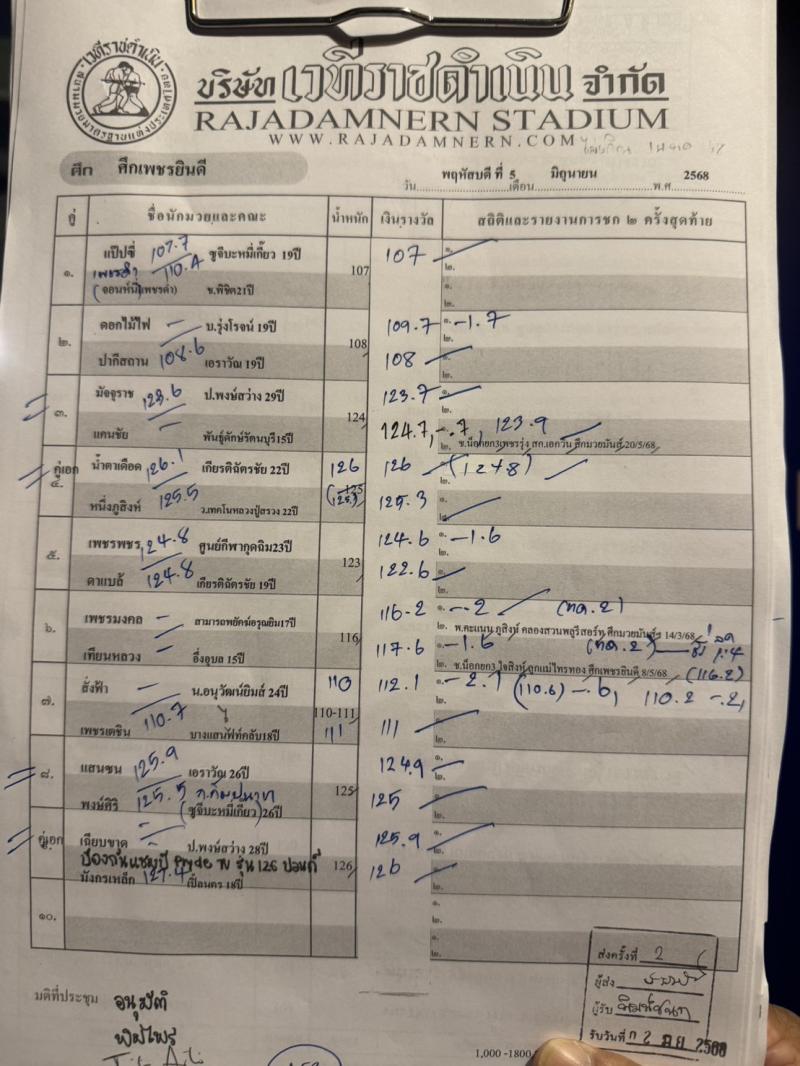 เวทีราชดำเนิน
บริษัท เวทีราชดำเนิน จำกัด
RAJADAMNERN STADIUM
WWW.RAJADAMNERN.COM
ศึก ศึกเพชรยินดี
วัน พฤหัสบดี ที่ 5 เดือน มิถุนายน พ.ศ. 2568
คู่ ชื่อนักมวยและคณะ น้ำหนัก เงินรางวัล สถิติและรายงานการชก ๒ ครั้งสุดท้าย
๑. แป๊ปซี่ 107.7 ซูจีบะหมี่เกี๊ยว 19ปี 107 107 ๑. ๒.
เพชรดำ 110.4
(จอนห์นี่)เพชรดำ ช.พิชิต21ปี ๑. ๒.
๒. ดอกไม้ไฟ – บ.รุ่งโรจน์ 19ปี 108 109.7 ๑. -1.7 ๒.
ปากีสถาน 108.6 เอราวัณ 19ปี 108 ๑. ๒.
๓. มัจจุราช 123.6 ป.พงษ์สว่าง 29ปี 124 123.7 ๑. ๒.
แคนชัย – พันธุ์ดักษ์รัตนบุรี15ปี 124.7, -.7, 123.9
๒. ช.น็อกยก3เพชรรุ่ง สก.เอกวัน ศึกมวยมันส์ 20/5/68
คู่เอก ๔. น้ำตาเดือด 126.1 เกียรติฉัตรชัย 22ปี 126 126 (124.8) ๒.
หนึ่งภูสิงห์ 125.5 ว.เทคโนหลวงปู่สรวง 22ปี 125 (125.3) 125.3 ๑. ๒.
๕. เพชรพชร 124.8 ศูนย์กีฬากุดฉิม23ปี 123 124.6 ๑. -1.6 ๒.
ดาแบล้ 124.8 เกียรติฉัตรชัย 19ปี 122.6 ๑. ๒.
๖. เพชรมงคล – สามารถพยัคฆ์อรุณยิม17ปี 116 116.2 ๑. -.2 (ทด.2)
๒. พ.คะแนน ภูสิงห์ คลองสวนพลูรีสอร์ท ศึกมวยมันส์ฯ 14/3/68
เทียนหลวง – อึ่งอุบล 15ปี 117.6 ๑. -1.6 (ทด.2)
๒. ช.น็อกยก3 ใจสิงห์ ลูกแม่ไทรทอง ศึกเพชรยินดี 8/5/68 (116.2)
๗. สั่งฟ้า – น.อนุวัฒน์ยิมส์ 24ปี 110 112.1 ๑. -2.1 (110.6) -.6, 110.2 -.2, ๒.
110-111
เพชรเตชิน 110.7 บางแสนไฟ้ท์คลับ18ปี 111 111 ๑. ๒.
๘. แสนซน 125.9 เอราวัณ 26ปี 125 124.9 ๑. ๒.
พงษ์ศิริ 125.5 (ซูจีบะหมี่เกี๊ยว)26ปี 125 ๑. ๒.
คู่เอก เฉียบขาด – ป.พงษ์สว่าง 28ปี 125.9 ๑. ๒.
ป้องกันแชมป์ Pryde TV รุ่น 126 ปอนด์ 126 126 ๑. ๒.
มังกรเหล็ก 127.4 เปี๋ยนคร 18ปี
๑๐. ๑. ๒.
๑. ๒.
มติที่ประชุม อนุมัติ
ส่งครั้งที่ 2
ผู้ส่ง
ผู้รับ
รับวันที่ 02 มิย 2568
1,000 -1800